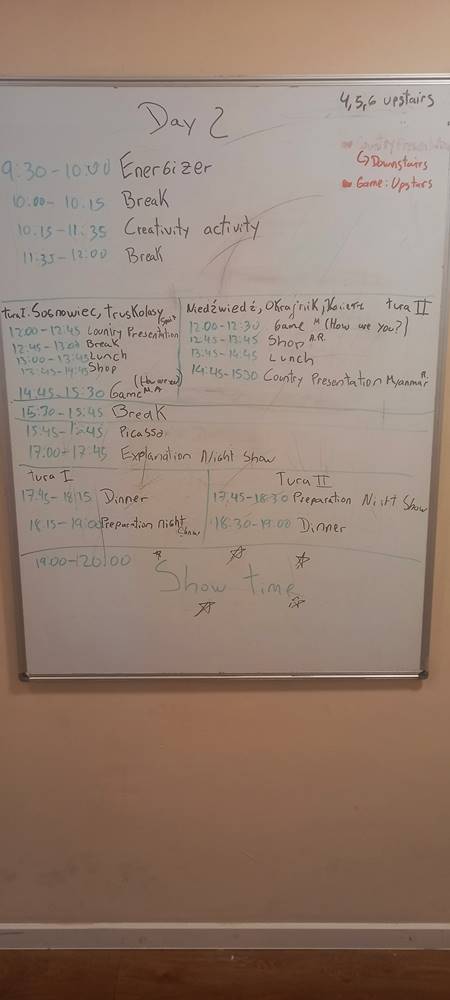 4,5,6 upstairs
Day 2
Country Presentation
↳ Downstairs
Game: Upstairs
9:30-10:00 Energizer
10:00-10.15 Break
10.15-11.35 Creativity activity
11.35-12:00 Break
tura I. Sosnowiec, Truskolasy
12:00-12:45 Country Presentation
12:45-13:00 Break
13:00-13:45 Lunch
13:45-14:45 Shop
14:45-15:30 Game M.A
Niedźwiedź, Okrajnik, tura II
12:00-12:30 Game M (How are you?)
12:45-13:45 Shop A.R.
13:45-14:45 Lunch
14:45-1530 Country Presentation Myanmar A.
15:30-15:45 Break
15:45- Picasso
17:00-17:45 Explanation Night Show
tura I
17:45-18:15 Dinner
18:15-19:00 Preparation night Show
Tura II
17.45-18:30 Preparation Night Show
18:30-19:00 Dinner
19:00-20:00 Show time